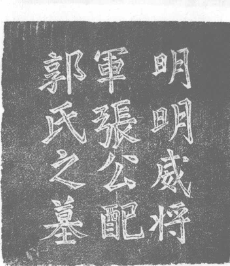 明明威将
軍張公配
郭氏之墓